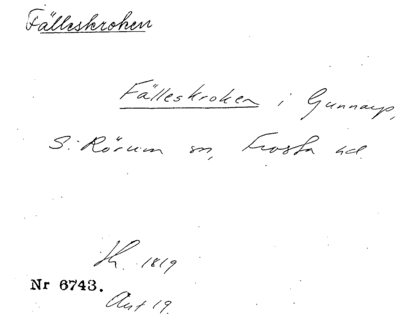 Fälleskroken
Fälleskroken i Gunnarp,
S. Rörum sn, Frosta hd.
Sk. 1819
Nr 6743.
Akt 19.